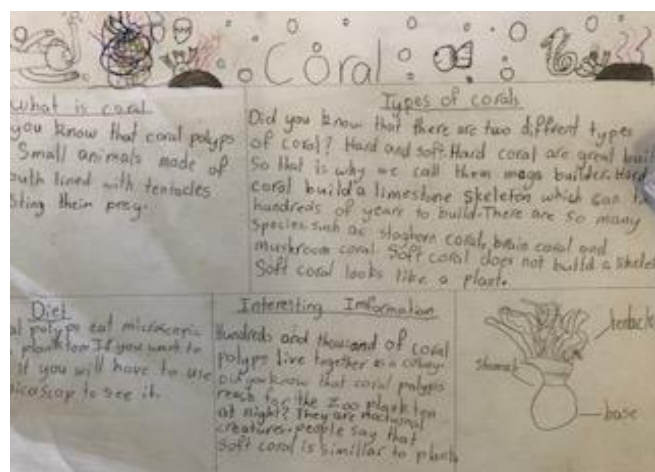 Coral
What is coral
you know that coral polyps
Small animals made of
outh lined with tentacles
sting their prey.
Types of corals
Did you know that there are two diffrent types
of coral? Hard and soft. Hard coral are great buil
So that is why we call them mega builder. Hard
coral build a limestone skeleton which can ta
hundreds of years to build. There are so many
species such as staghorn coral, brain coral and
mushroom coral. Soft coral does not build a skelet
Soft coral looks like a plant.
Diet
al polyps eat microscopic
plankton If you want to
it you will have to use
icoscop to see it.
Interesting Imformation
Hundreds and thousand of coral
polyps live together as a colony.
Did you know that coral polyps
reach for the Zoo plankton
at night? They are nocturnal
creatures. people say that
Soft coral is simillar to plants
tentacle
stomach
base